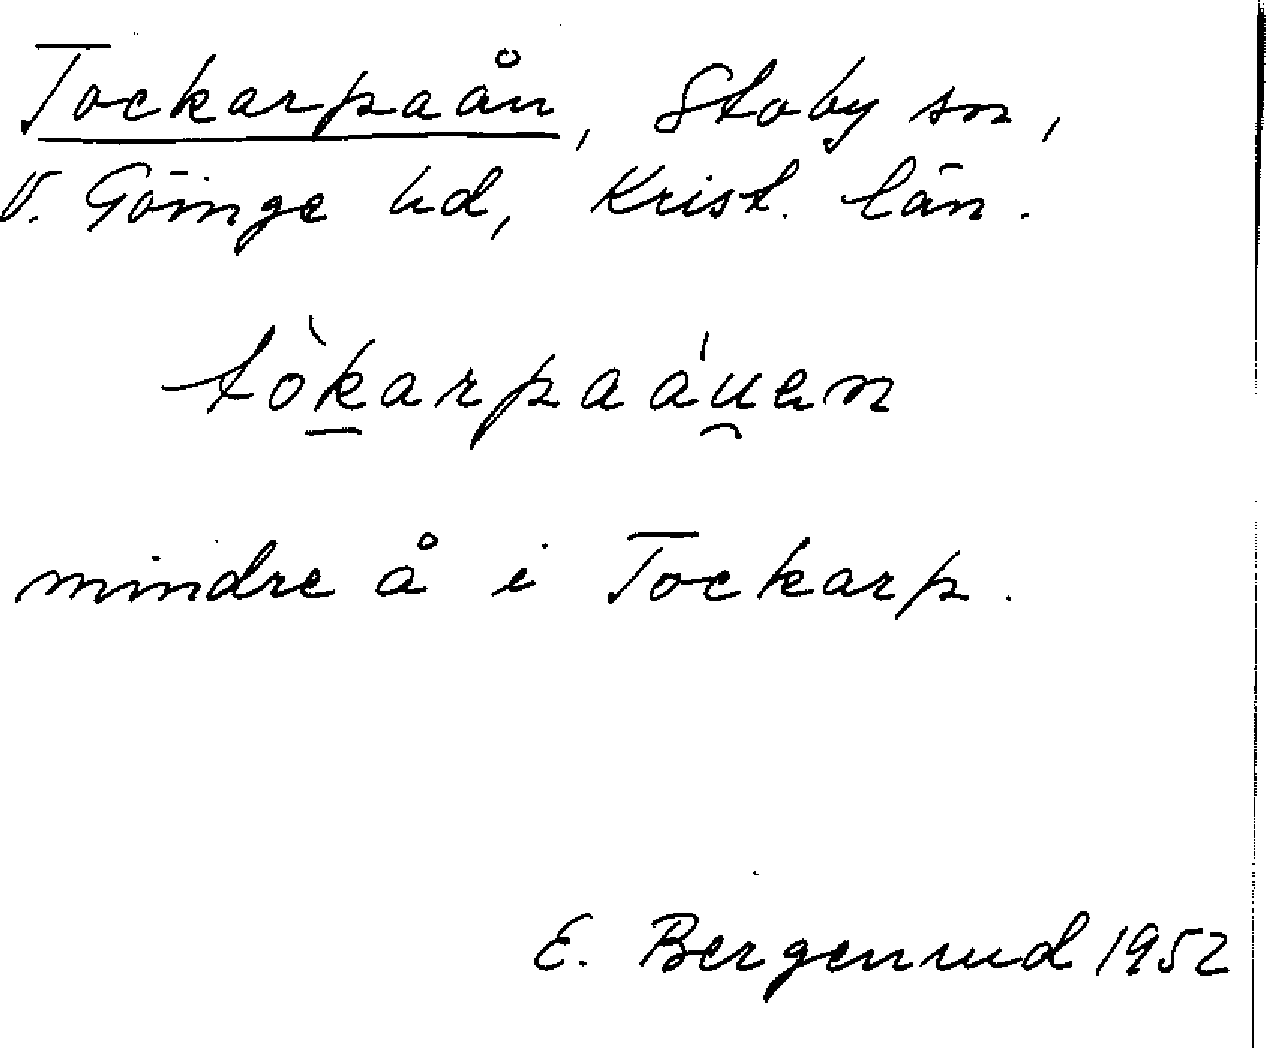 Tockarpaån, Stoby sn,
V. Göinge hd, Krist. län.
tòk̲arpaáu̯en
mindre å i Tockarp.
E. Bergenrud 1952